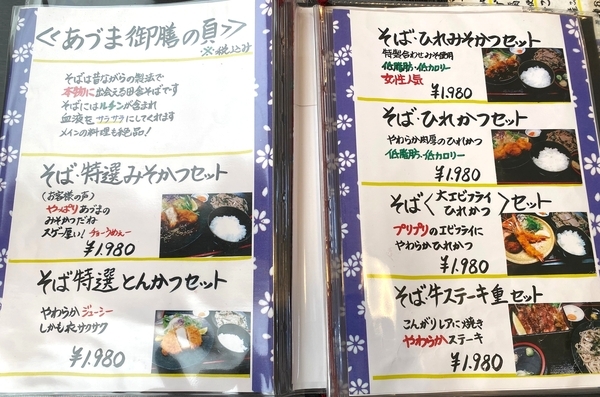 ≪あづま御膳の頁≫
※税込み
そばは昔ながらの製法で
本物に出会える田舎そばです
そばにはルチンが含まれ
血液をサラサラにしてくれます
メインの料理も絶品！
そば・特選みそかつセット
(お客様の声)
やっぱりあづまの
みそかつだね
スゲー旨い！チョーうめぇー
¥1.980
そば特選とんかつセット
やわらかジューシー
しかも衣サクサク
¥1.980
そば・ひれみそかつセット
特製合わせみそ使用
低脂肪・低カロリー
女性人気
¥1.980
そば・ひれかつセット
やわらか肉厚のひれかつ
低脂肪・低カロリー
¥1.980
そば〈大エビフライ ひれかつ〉セット
プリプリのエビフライに
やわらかひれかつ
¥1.980
そば・牛ステーキ重セット
こんがりレアに焼き
やわらかステーキ
¥1.980